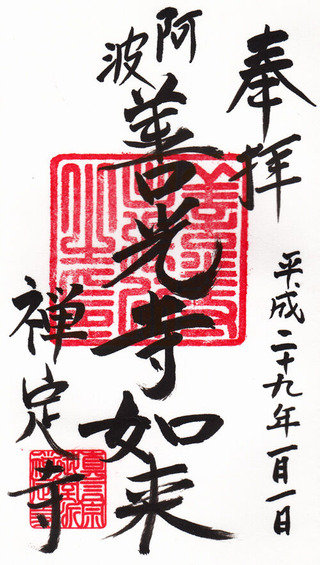 奉拝
平成二十九年一月一日
阿波
善光寺如来
禅定寺